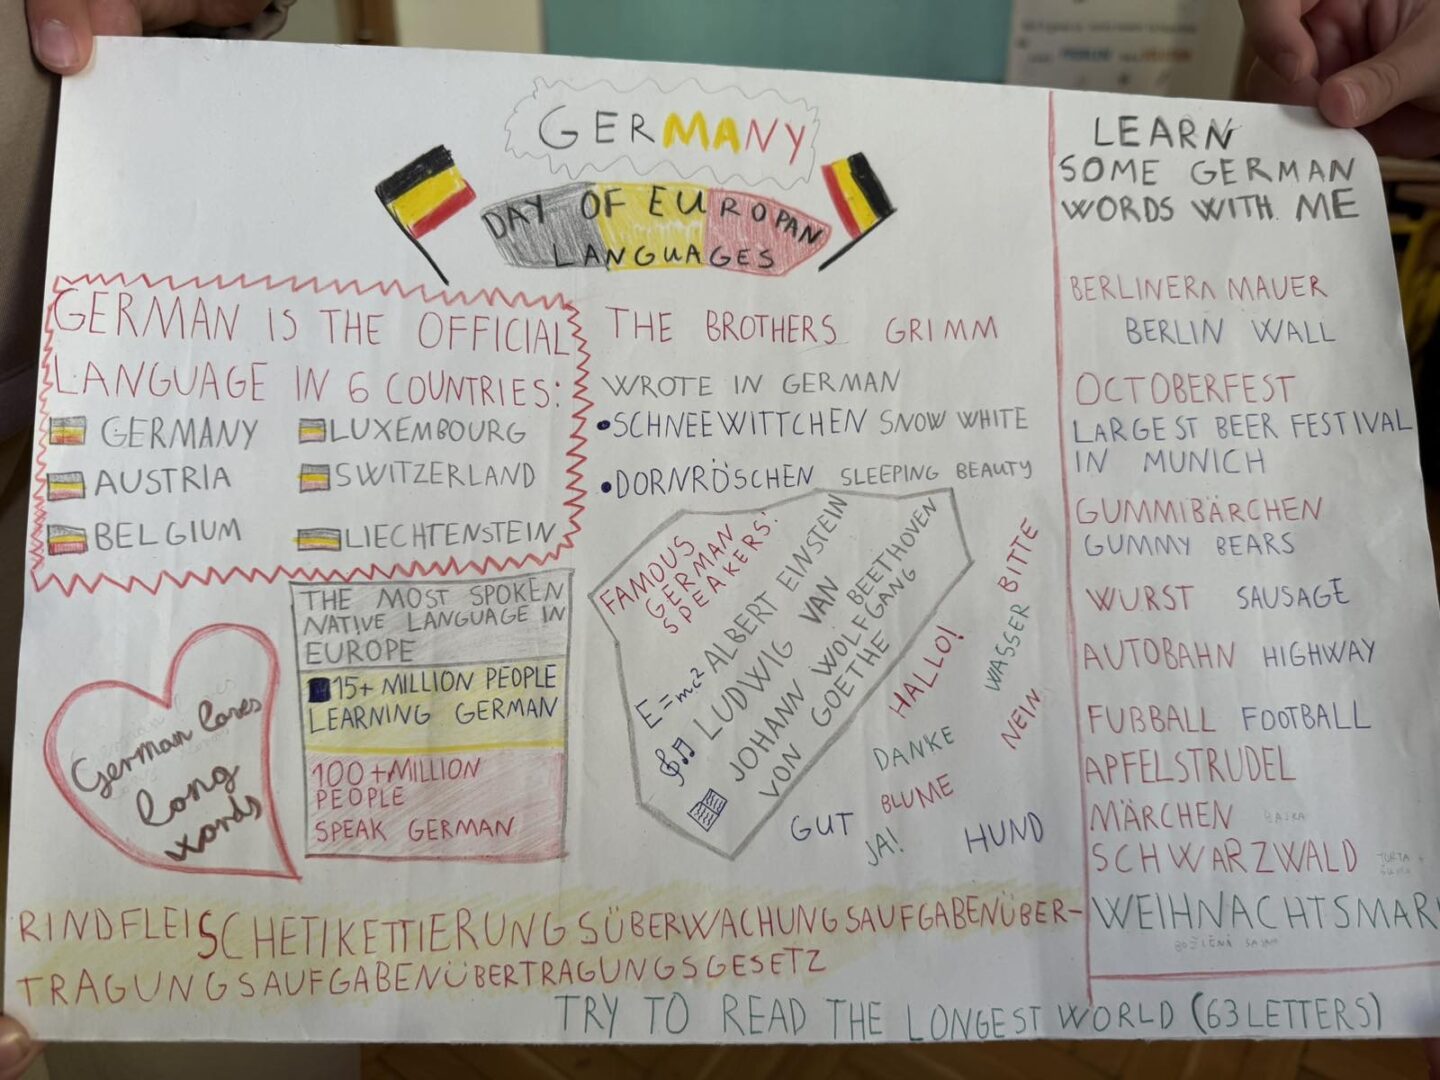 GERMANY
DAY OF EUROPAN
LANGUAGES
GERMAN IS THE OFFICIAL
LANGUAGE IN 6 COUNTRIES:
GERMANY
LUXEMBOURG
AUSTRIA
SWITZERLAND
BELGIUM
LIECHTENSTEIN
THE MOST SPOKEN
NATIVE LANGUAGE IN
EUROPE
15+ MILLION PEOPLE
LEARNING GERMAN
100+MILLION
PEOPLE
SPEAK GERMAN
German loves
long
words
THE BROTHERS GRIMM
WROTE IN GERMAN
•SCHNEEWITTCHEN SNOW WHITE
•DORNRÖSCHEN SLEEPING BEAUTY
FAMOUS
GERMAN
SPEAKERS:
E=mc² ALBERT EINSTEIN
LUDWIG VAN
BEETHOVEN
JOHANN WOLFGANG
VON GOETHE
BITTE
WASSER
HALLO!
NEIN
DANKE
BLUME
GUT
JA!
HUND
RINDFLEISCHETIKETTIERUNGSÜBERWACHUNGSAUFGABENÜBER-
TRAGUNGSAUFGABENÜBERTRAGUNGSGESETZ
TRY TO READ THE LONGEST WORLD (63 LETTERS)
LEARN
SOME GERMAN
WORDS WITH ME
BERLINERN MAUER
BERLIN WALL
OCTOBERFEST
LARGEST BEER FESTIVAL
IN MUNICH
GUMMIBÄRCHEN
GUMMY BEARS
WURST SAUSAGE
AUTOBAHN HIGHWAY
FUßBALL FOOTBALL
APFELSTRUDEL
MÄRCHEN BAJKA
SCHWARZWALD
WEIHNACHTSMAR